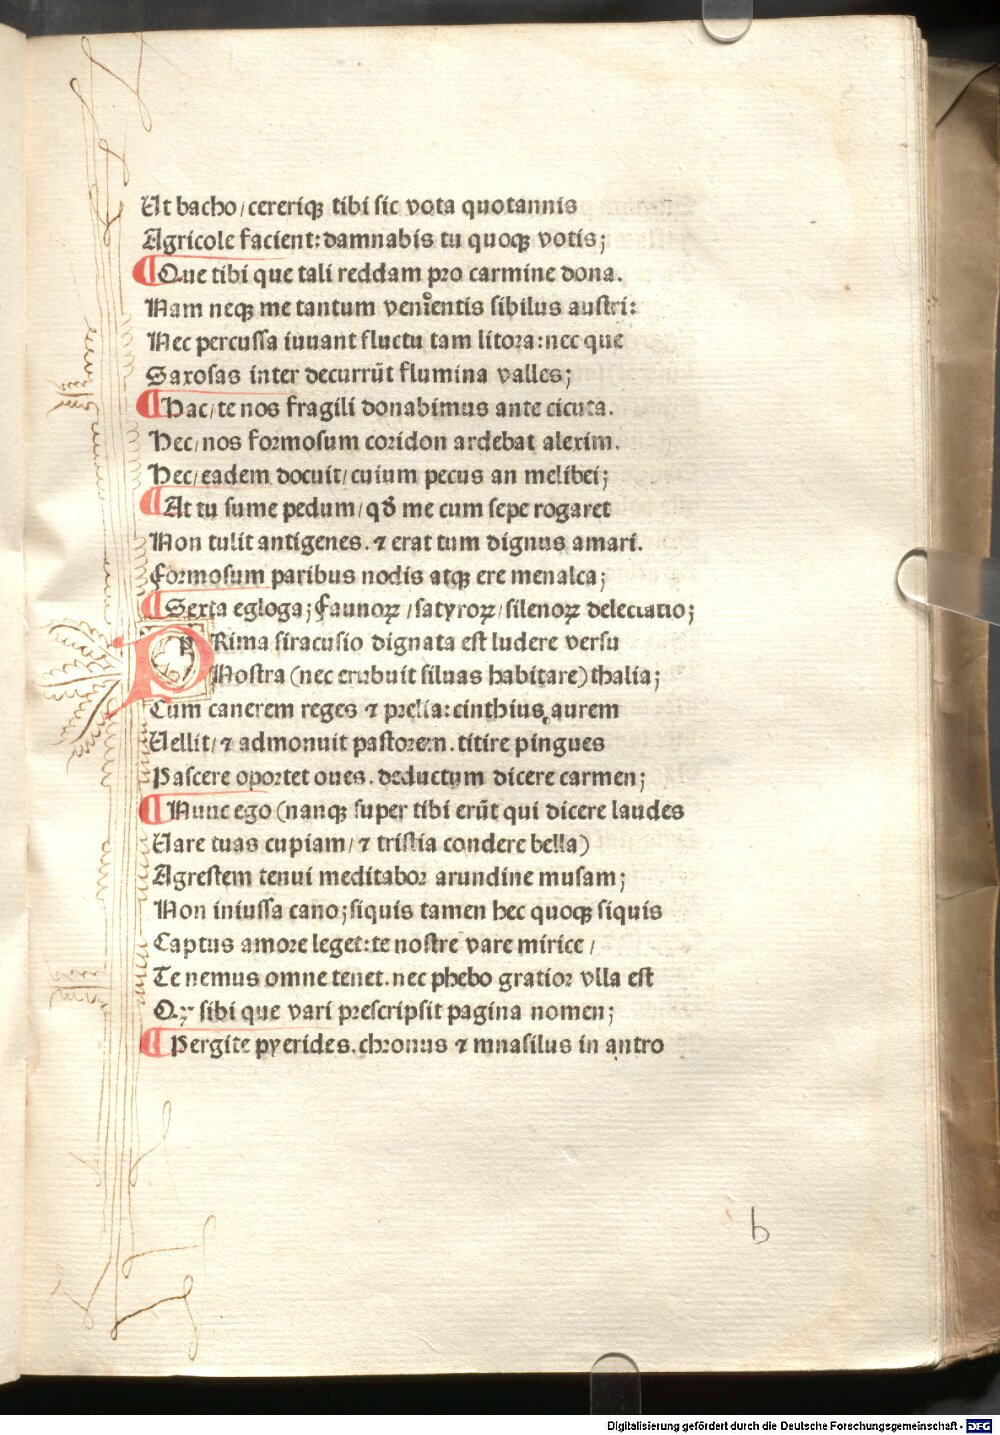 Ut bacho/cereriqꝫ tibi sic vota quotannis
Agricole facient: damnabis tu quoqꝫ votis;
Que tibi que tali reddam pro carmine dona.
Nam neqꝫ me tantum venientis sibilus austri:
Nec percussa iuuant fluctu tam litora: nec que
Saxosas inter decurrūt flumina valles;
Hac/te nos fragili donabimus ante cicuta.
Hec/nos formosum coridon ardebat alexim.
Hec/eadem docuit/cuium pecus an melibei;
At tu sume pedum/qđ me cum sepe rogaret
Non tulit antigenes. ⁊ erat tum dignus amari.
Formosum paribus nodis atqꝫ ere menalca;
Sexta egloga; Faunoꝝ/satyroꝝ/silenoꝝ delectatio;
PRima siracusio dignata est ludere versu
Nostra (nec erubuit siluas habitare) thalia;
Cum canerem reges ⁊ prelia: cinthius aurem
Uellit/⁊ admonuit pastorem. titire pingues
Pascere oportet oues. deductum dicere carmen;
Nunc ego (nanqꝫ super tibi erūt qui dicere laudes
Uare tuas cupiam/⁊ tristia condere bella)
Agrestem tenui meditabor arundine musam;
Non iniussa cano; siquis tamen hec quoqꝫ siquis
Captus amore leget: te nostre vare mirice/
Te nemus omne tenet. nec phebo gratior vlla est
Qꝫ sibi que vari prescripsit pagina nomen;
Pergite pyerides. chromus ⁊ mnasilus in antro
b
Digitalisierung gefördert durch die Deutsche Forschungsgemeinschaft - DFG